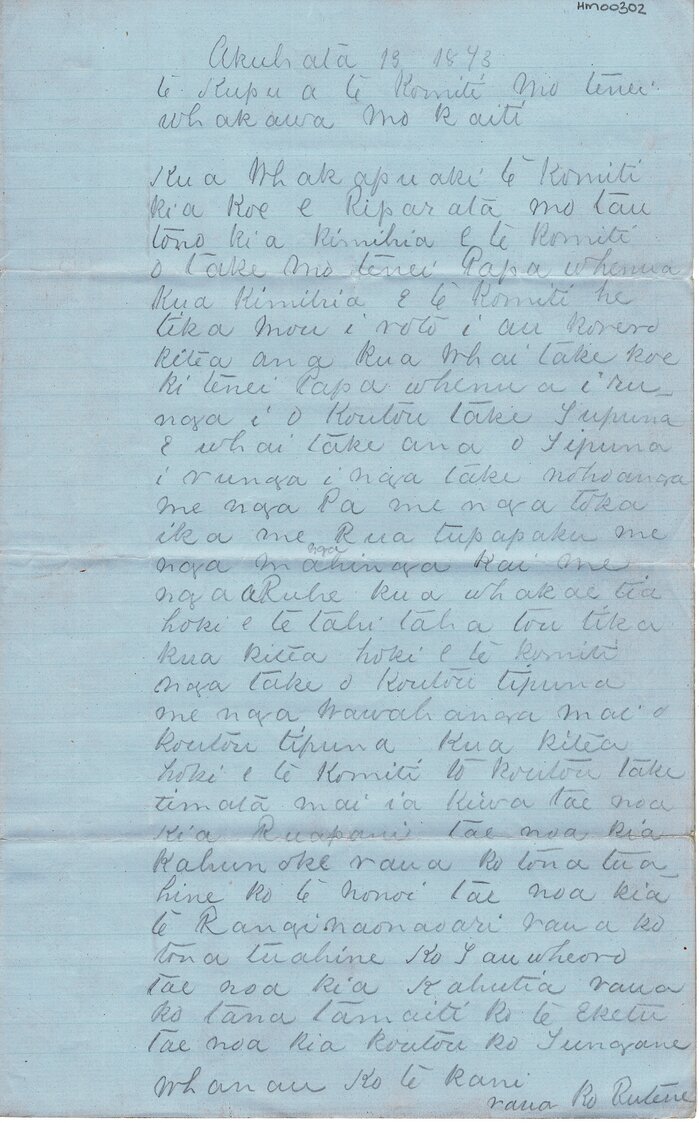 HM00302
Akuhata 13 1873
te Kupu a te Komiti mo tenei
whakawa mo Kaiti
Kua Whakapuaki te Komiti
kia Koe e Riparata mo tau
tono kia kimihia e te Komiti
o take mo tenei Papa whenua
Kua Kimihia e te Komiti he
tika mou i roto i au korero
kitea ana kua Whai take koe
ki tenei Papa whenua i ru_
nga i o Koutou take Tupuna
E whai take ana o Tipuna
i runga i nga take nohoanga
me nga Pa me nga toka
ika me Rua tupapaku me
nga mahinga Kai me
nga
nga aRuhe kua whakae tia
hoki e te tahi taha tou tika
kua kitea hoki e te komiti
nga take o Koutou tipuna
me nga Wawahanga mai o
koutou tipuna Kua kitea
hoki e te Komiti to koutou take
timata mai ia Kiwa tae noa
Kia Ruapani tae noa kia
Kahunoke raua ko tona tua
hine ko te nonoi tae noa kia
te Ranginaonaoari raua ko
tona tuahine Ko Tauwheoro
tae noa kia Kahutia raua
ko tana tamaiti ko te Eketu
tae noa kia koutou ko Tungane
whanau Ko te kani
raua Ko Rutene